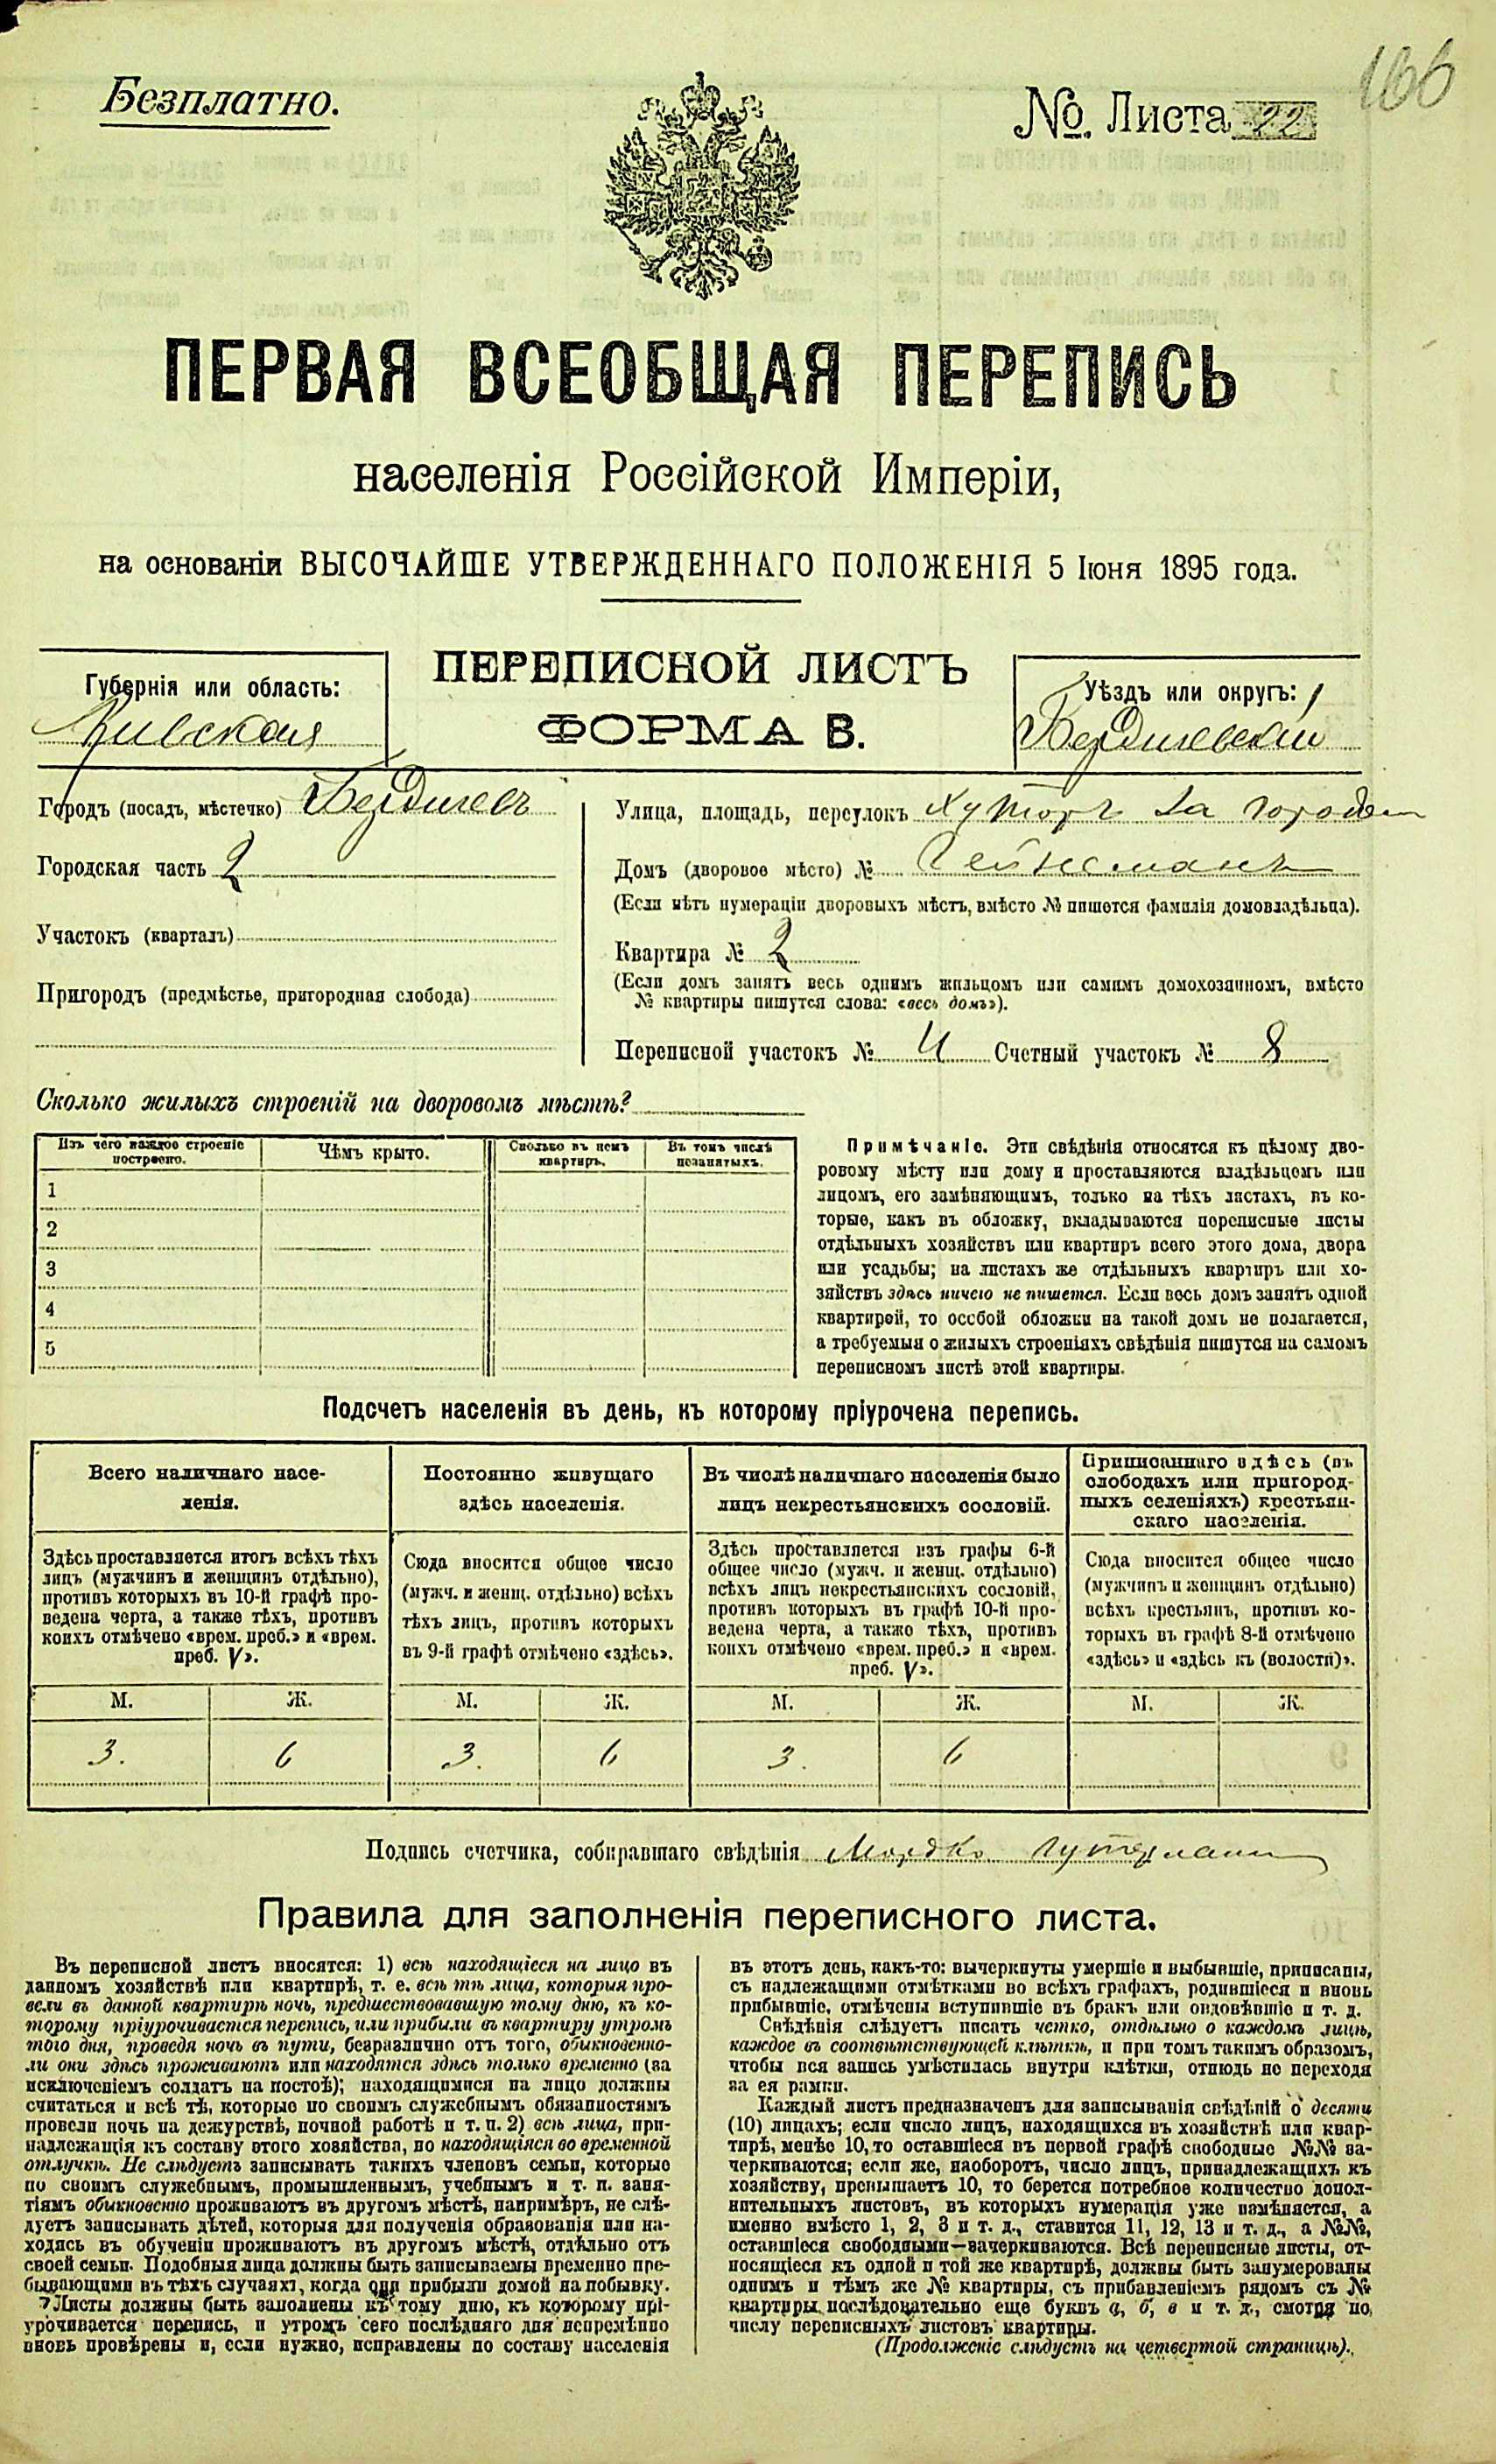 166
Безплатно.
№. Листа 22
ПЕРВАЯ ВСЕОБЩАЯ ПЕРЕПИСЬ
населенія Россійской Имперіи,
на основаніи ВЫСОЧАЙШЕ УТВЕРЖДЕННАГО ПОЛОЖЕНІЯ 5 Іюня 1895 года.
ПЕРЕПИСНОЙ ЛИСТЪ
ФОРМА В.
Губернія или область:
Кивская
Уѣздъ или округъ:
Бердичевскій
Городъ (посадъ, мѣстечко) Бердичевъ
Городская часть 2
Участокъ (кварталъ)
Пригородъ (предмѣстье, пригородная слобода)
Улица, площадь, переулокъ Хуторъ за городом
Домъ (дворовое мѣсто) №
(Если нѣтъ нумераціи дворовыхъ мѣстъ, вмѣсто № пишется фамилія домовладѣльца).
Квартира № 2
(Если домъ занятъ весь однимъ жильцомъ или самимъ домохозяиномъ, вмѣсто
№ квартиры пишутся слова: «весь домъ»).
Переписной участокъ № 4 Счетный участокъ № 8
Сколько жилыхъ строеній на дворовомъ мѣстѣ?
Изъ чего каждое строеніе построено.
Чѣмъ крыто.
Сколько въ немъ квартиръ.
Въ томъ числѣ незанятыхъ.
1
2
3
4
5
Примѣчаніе. Эти свѣдѣнія относятся къ цѣлому дво-
ровому мѣсту или дому и проставляются владѣльцемъ или
лицомъ, его замѣняющимъ, только на тѣхъ листахъ, въ ко-
торые, какъ въ обложку, вкладываются переписные листы
отдѣльныхъ хозяйствъ или квартиръ всего этого дома, двора
или усадьбы; на листахъ же отдѣльныхъ квартиръ или хо-
зяйствъ здѣсь ничего не пишется. Если весь домъ занятъ одной
квартирой, то особой обложки на такой домъ не полагается,
а требуемыя о жилыхъ строеніяхъ свѣдѣнія пишутся на самомъ
переписномъ листѣ этой квартиры.
Подсчетъ населенія въ день, къ которому пріурочена перепись.
Всего наличнаго насе-
ленія.
Здѣсь проставляется итогъ всѣхъ тѣхъ
лицъ (мужчинъ и женщинъ отдѣльно),
противъ которыхъ въ 10-й графѣ про-
ведена черта, а также тѣхъ, противъ
коихъ отмѣчено «врем. преб.» и «врем.
преб. V».
Постоянно живущаго
здѣсь населенія.
Сюда вносится общее число
(мужч. и женщ. отдѣльно) всѣхъ
тѣхъ лицъ, противъ которыхъ
въ 9-й графѣ отмѣчено «здѣсь».
Въ числѣ наличнаго населенія было
лицъ некрестьянскихъ сословій.
Здѣсь проставляется изъ графы 6-й
общее число (мужч. и женщ. отдѣльно)
всѣхъ лицъ некрестьянскихъ сословій,
противъ которыхъ въ графѣ 10-й про-
ведена черта, а также тѣхъ, противъ
коихъ отмѣчено «врем. преб.» и «врем.
преб. V».
Приписаннаго здѣсь (въ
слободахъ или пригород-
ныхъ селеніяхъ) крестьян-
скаго населенія.
Сюда вносится общее число
(мужчинъ и женщинъ отдѣльно)
всѣхъ крестьянъ, противъ ко-
торыхъ въ графѣ 8-й отмѣчено
«здѣсь» и «здѣсь къ (волости)».
М. Ж. М. Ж. М. Ж. М. Ж.
3. 6 3. 6 3. 6
Подпись счетчика, собиравшаго свѣдѣнія Мордко Гутерман
Правила для заполненія переписного листа.
Въ переписной листъ вносятся: 1) всѣ находящіеся на лицо въ
данномъ хозяйствѣ или квартирѣ, т. е. всѣ тѣ лица, которыя про-
вели въ данной квартирѣ ночь, предшествовавшую тому дню, къ ко-
торому пріурочивается перепись, или прибыли въ квартиру утромъ
того дня, проведя ночь въ пути, безразлично отъ того, обыкновенно-
ли они здѣсь проживаютъ или находятся здѣсь только временно (за
исключеніемъ солдатъ на постоѣ); находящимися на лицо должны
считаться и всѣ тѣ, которые по своимъ служебнымъ обязанностямъ
провели ночь на дежурствѣ, ночной работѣ и т. п. 2) всѣ лица, при-
надлежащія къ составу этого хозяйства, но находящіяся во временной
отлучкѣ. Не слѣдуетъ записывать такихъ членовъ семьи, которые
по своимъ служебнымъ, промышленнымъ, учебнымъ и т. п. заня-
тіямъ обыкновенно проживаютъ въ другомъ мѣстѣ, напримѣръ, не слѣ-
дуетъ записывать дѣтей, которыя для полученія образованія или на-
ходясь въ обученіи проживаютъ въ другомъ мѣстѣ, отдѣльно отъ
своей семьи. Подобныя лица должны быть записываемы временно пре-
бывающими въ тѣхъ случаяхъ, когда они прибыли домой на побывку.
Листы должны быть заполнены къ тому дню, къ которому прі-
урочивается перепись, и утромъ сего послѣдняго дня непремѣнно
вновь провѣрены и, если нужно, исправлены по составу населенія
въ этотъ день, какъ-то: вычеркнуты умершіе и выбывшіе, приписаны,
съ надлежащими отмѣтками во всѣхъ графахъ, родившіеся и вновь
прибывшіе, отмѣчены вступившіе въ бракъ или овдовѣвшіе и т. д.
Свѣдѣнія слѣдуетъ писать четко, отдѣльно о каждомъ лицѣ,
каждое въ соотвѣтствующей клѣткѣ, и при томъ такимъ образомъ,
чтобы вся запись умѣстилась внутри клѣтки, отнюдь не переходя
за ея рамки.
Каждый листъ предназначенъ для записыванія свѣдѣній о десяти
(10) лицахъ; если число лицъ, находящихся въ хозяйствѣ или квар-
тирѣ, менѣе 10, то оставшіеся въ первой графѣ свободные №№ за-
черкиваются; если же, наоборотъ, число лицъ, принадлежащихъ къ
хозяйству, превышаетъ 10, то берется потребное количество допол-
нительныхъ листовъ, въ которыхъ нумерація уже измѣняется, а
именно вмѣсто 1, 2, 3 и т. д., ставится 11, 12, 13 и т. д., а №№,
оставшіеся свободными—зачеркиваются. Всѣ переписные листы, от-
носящіеся къ одной и той же квартирѣ, должны быть занумерованы
однимъ и тѣмъ же № квартиры, съ прибавленіемъ рядомъ съ №
квартиры послѣдовательно еще буквъ а, б, в и т. д., смотря по
числу переписныхъ листовъ квартиры.
(Продолженіе слѣдуетъ на четвертой страницѣ).